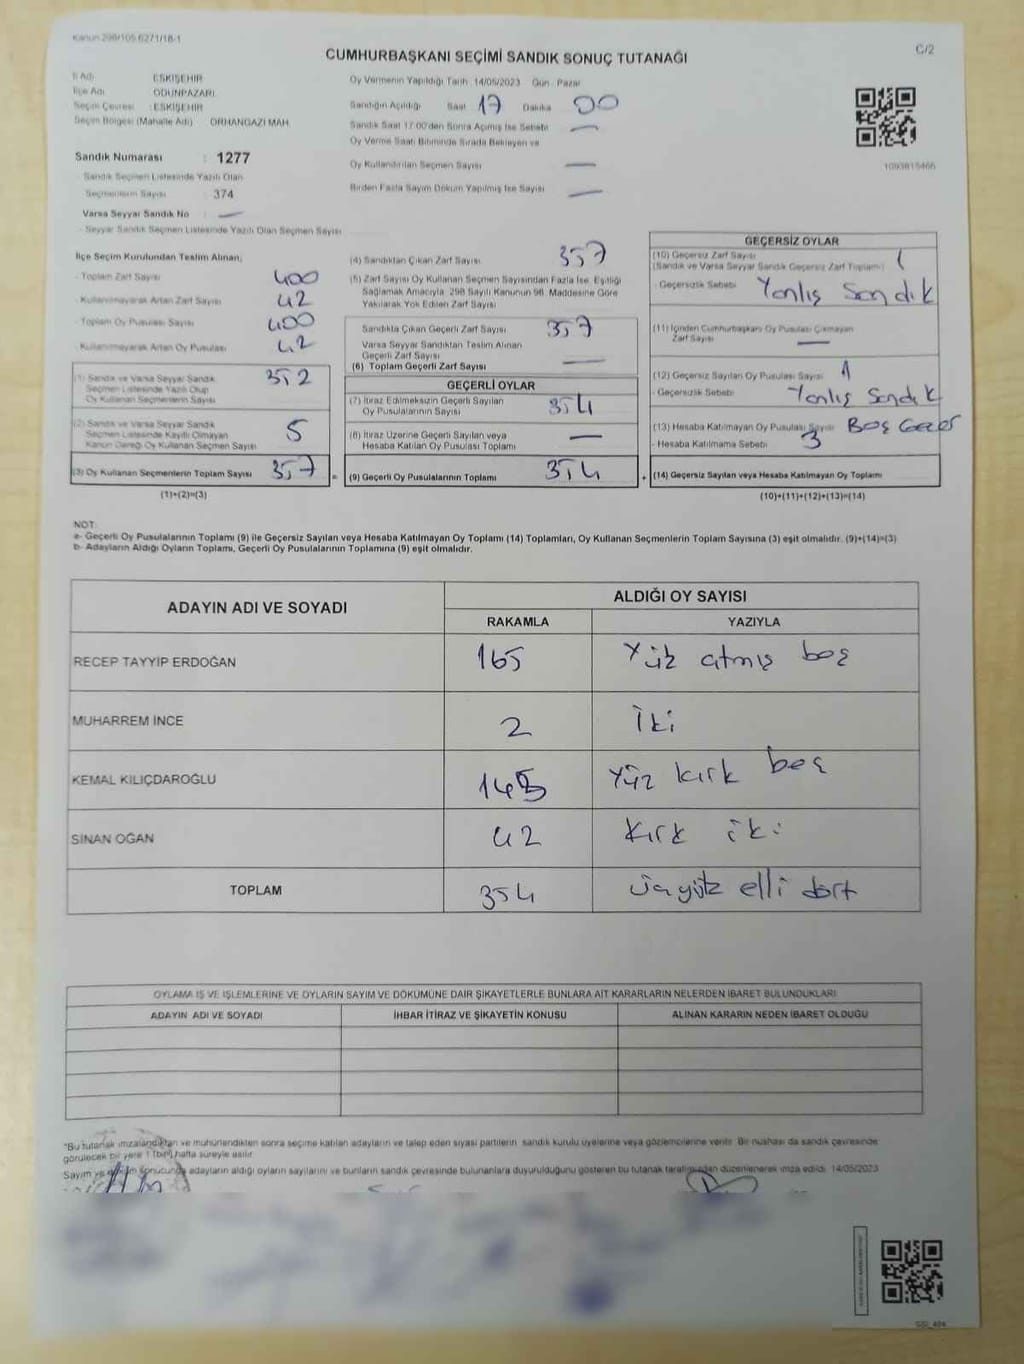 Kanun 298/105 6271/18-1
C/2
CUMHURBAŞKANI SEÇİMİ SANDIK SONUÇ TUTANAĞI
İl Adı ESKİŞEHİR
İlçe Adı ODUNPAZARI
Seçim Çevresi : ESKİŞEHİR
Seçim Bölgesi (Mahalle Adı) ORHANGAZİ MAH.
Sandık Numarası : 1277
Sandık Seçmen Listesinde Yazılı Olan
Seçmenlerin Sayısı : 374
Varsa Seyyar Sandık No : —
- Seyyar Sandık Seçmen Listesinde Yazılı Olan Seçmen Sayısı
Oy Vermenin Yapıldığı Tarih 14/05/2023 Gün Pazar
Sandığın Açıldığı Saat 17 Dakika 00
Sandık Saat 17:00'den Sonra Açılmış İse Sebebi —
Oy Verme Saati Bitiminde Sırada Bekleyen ve
Oy Kullandırılan Seçmen Sayısı —
Birden Fazla Sayım Döküm Yapılmış İse Sayısı —
1093815466
İlçe Seçim Kurulundan Teslim Alınan;
- Toplam Zarf Sayısı 400
- Kullanılmayarak Artan Zarf Sayısı 42
- Toplam Oy Pusulası Sayısı 400
- Kullanılmayarak Artan Oy Pusulası 42
(1) Sandık ve Varsa Seyyar Sandık
Seçmen Listesinde Yazılı Olup
Oy Kullanan Seçmenlerin Sayısı 352
(2) Sandık ve Varsa Seyyar Sandık
Seçmen Listesinde Kayıtlı Olmayan
Kanun Gereği Oy Kullanan Seçmen Sayısı 5
(3) Oy Kullanan Seçmenlerin Toplam Sayısı 357
(1)+(2)=(3)
(4) Sandıktan Çıkan Zarf Sayısı 357
(5) Zarf Sayısı Oy Kullanan Seçmen Sayısından Fazla İse, Eşitliği
Sağlamak Amacıyla 298 Sayılı Kanunun 98. Maddesine Göre
Yakılarak Yok Edilen Zarf Sayısı
Sandıkta Çıkan Geçerli Zarf Sayısı 357
Varsa Seyyar Sandıktan Teslim Alınan
Geçerli Zarf Sayısı —
(6) Toplam Geçerli Zarf Sayısı
GEÇERLİ OYLAR
(7) İtiraz Edilmeksizin Geçerli Sayılan
Oy Pusulalarının Sayısı 354
(8) İtiraz Üzerine Geçerli Sayılan veya
Hesaba Katılan Oy Pusulası Toplamı —
= (9) Geçerli Oy Pusulalarının Toplamı 354
GEÇERSİZ OYLAR
(10) Geçersiz Zarf Sayısı
(Sandık ve Varsa Seyyar Sandık Geçersiz Zarf Toplamı) 1
- Geçersizlik Sebebi Yanlış Sandık
(11) İçinden Cumhurbaşkanı Oy Pusulası Çıkmayan
Zarf Sayısı —
(12) Geçersiz Sayılan Oy Pusulası Sayısı 1
- Geçersizlik Sebebi Yanlış Sandık
(13) Hesaba Katılmayan Oy Pusulası Sayısı 3 Boş
- Hesaba Katılmama Sebebi
+ (14) Geçersiz Sayılan veya Hesaba Katılmayan Oy Toplamı
(10)+(11)+(12)+(13)=(14)
NOT:
a- Geçerli Oy Pusulalarının Toplamı (9) ile Geçersiz Sayılan veya Hesaba Katılmayan Oy Toplamı (14) Toplamları, Oy Kullanan Seçmenlerin Toplam Sayısına (3) eşit olmalıdır. (9)+(14)=(3)
b- Adayların Aldığı Oyların Toplamı, Geçerli Oy Pusulalarının Toplamına (9) eşit olmalıdır.
ADAYIN ADI VE SOYADI ALDIĞI OY SAYISI
RAKAMLA YAZIYLA
RECEP TAYYİP ERDOĞAN 165 Yüz atmış beş
MUHARREM İNCE 2 İki
KEMAL KILIÇDAROĞLU 145 Yüz kırk beş
SİNAN OĞAN 42 Kırk iki
TOPLAM 354 üçyüz elli dört
OYLAMA İŞ VE İŞLEMLERİNE VE OYLARIN SAYIM VE DÖKÜMÜNE DAİR ŞİKAYETLERLE BUNLARA AİT KARARLARIN NELERDEN İBARET BULUNDUKLARI
ADAYIN ADI VE SOYADI İHBAR İTİRAZ VE ŞİKAYETİN KONUSU ALINAN KARARIN NEDEN İBARET OLDUĞU
"Bu tutanak imzalandıktan ve mühürlendikten sonra seçime katılan adayların ve talep eden siyasi partilerin sandık kurulu üyelerine veya gözlemcilerine verilir. Bir nüshası da sandık çevresinde
görülecek bir yere 1 (bir) hafta süreyle asılır.
Sayım ve döküm sonucunda adayların aldığı oyların sayılarını ve bunların sandık çevresinde bulunanlara duyurulduğunu gösteren bu tutanak tarafımızdan düzenlenerek imza edildi. 14/05/2023